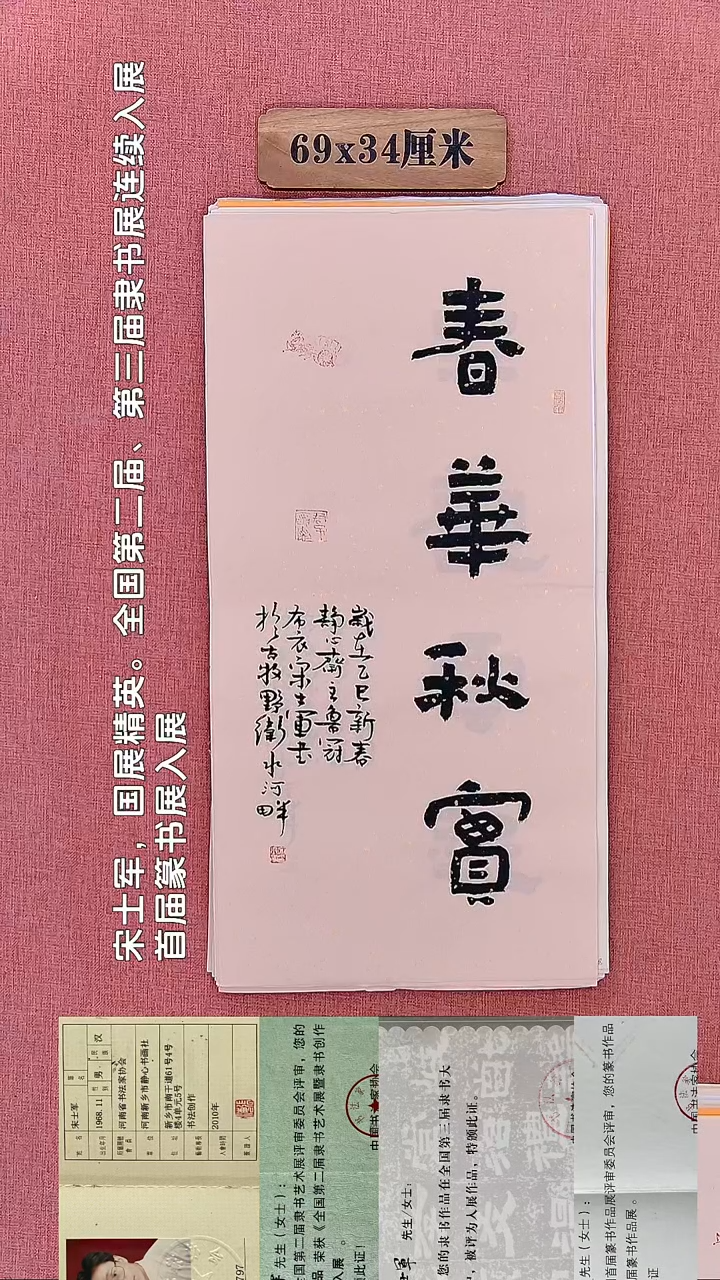 69x34厘米
春華秋實
歲在乙巳新春
静心齋主魯冠
布衣宋士軍书
於古牧野衛水河畔
宋士军，国展精英。全国第二届、第三届隶书展连续入展
首届篆书展入展
宋士军
1968.11
男
汉
河南省书法家协会
河南新乡市静心书画社
新乡市南干道61号4号
楼4单元5号
书法创作
2010年
797
先生（女士）：
国第二届隶书艺术展评审委员会评审，您的
品 荣获《全国第二届隶书艺术展暨隶书创作
入展 。
此证！
先生/女士：
您的隶书作品在全国第三届隶书大
中，被评为入展作品，特颁此证。
先生（女士）：
首届篆书作品展评审委员会评审，您的篆书作品
首届篆书作品展 。
证